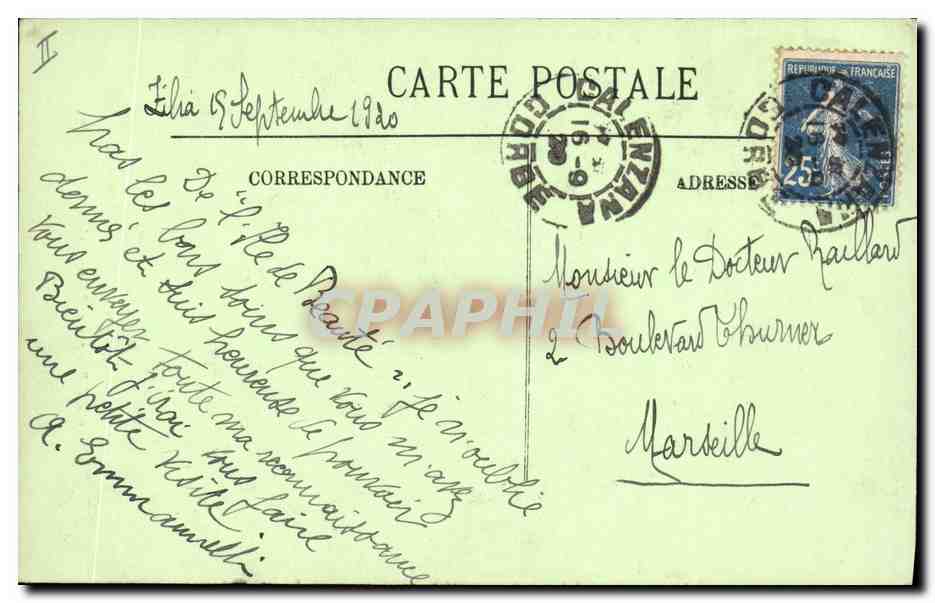 II
CARTE POSTALE
Zilia 15 Septembre 1920
CORRESPONDANCE
ADRESSE
CALENZANA
16-9
20
CORSE
REPUBLIQUE FRANÇAISE
25
CALENZANA
CORSE
De "l'Ile de Beauté", je n'oublie
pas les bons soins que vous m'avez
donnés et suis heureuse de pouvoir
vous envoyer toute ma reconnaissance
Bientôt j'irai vous faire
une petite visite
A. Emmanuelli
Monsieur le Docteur Raillard
2 Boulevard Thurner
Marseille
CPAPHIL